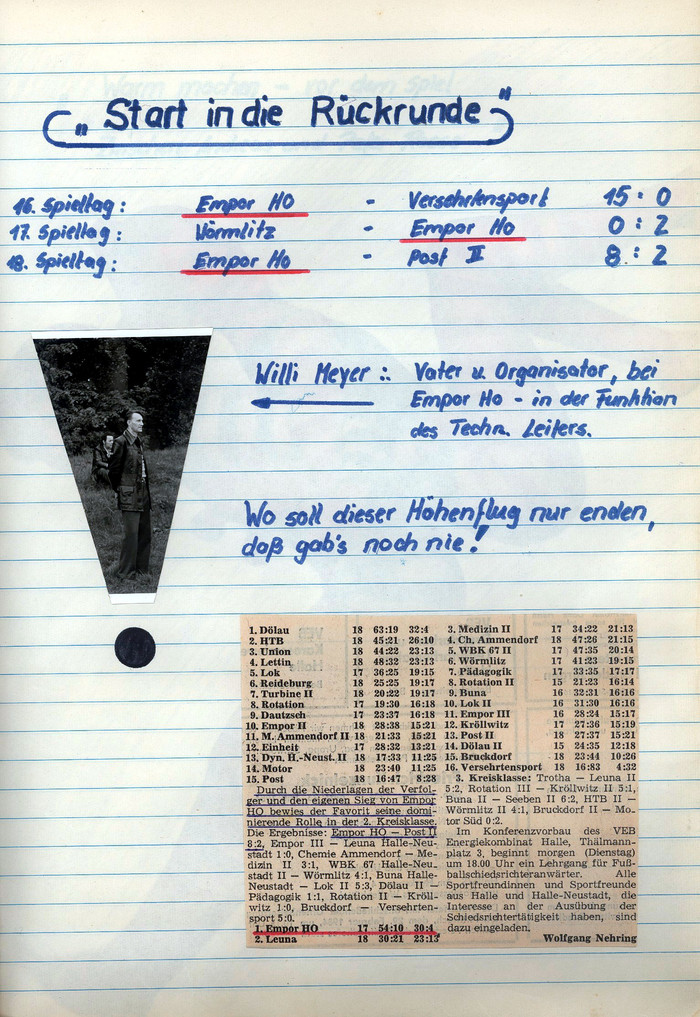 „Start in die Rückrunde"
16. Spieltag: Empor HO - Versehrtensport 15:0
17. Spieltag: Wörmlitz - Empor Ho 0:2
18. Spieltag: Empor Ho - Post II 8:2
Willi Meyer: Vater u. Organisator, bei
Empor Ho - in der Funktion
des Techn. Leiters.
Wo soll dieser Höhenflug nur enden,
daß gab's noch nie!
1. Dölau 18 63:19 32:4
2. HTB 18 45:21 26:10
3. Union 18 44:22 23:13
4. Lettin 18 48:32 23:13
5. Lok 17 36:25 19:15
6. Reideburg 18 25:25 19:17
7. Turbine II 18 20:22 19:17
8. Rotation 17 19:30 16:18
9. Dautzsch 17 23:37 16:18
10. Empor II 18 28:38 15:21
11. M. Ammendorf II 18 21:33 15:21
12. Einheit 17 28:32 13:21
13. Dyn. H.-Neust. II 18 17:33 11:25
14. Motor 18 23:40 11:25
15. Post 18 16:47 8:28
Durch die Niederlagen der Verfol-
ger und den eigenen Sieg von Empor
HO bewies der Favorit seine domi-
nierende Rolle in der 2. Kreisklasse.
Die Ergebnisse: Empor HO — Post II
8:2, Empor III — Leuna Halle-Neu-
stadt 1:0, Chemie Ammendorf — Me-
dizin II 3:1, WBK 67 Halle-Neu-
stadt II — Wörmlitz 4:1, Buna Halle-
Neustadt — Lok II 5:3, Dölau II —
Pädagogik 1:1, Rotation II — Kröll-
witz 1:0, Bruckdorf — Versehrten-
sport 5:0.
1. Empor HO 17 54:10 30:4
2. Leuna 18 30:21 23:13
3. Medizin II 17 34:22 21:13
4. Ch. Ammendorf 18 47:26 21:15
5. WBK 67 II 17 47:35 20:14
6. Wörmlitz 17 41:23 19:15
7. Pädagogik 17 33:35 17:17
8. Rotation II 15 21:23 16:14
9. Buna 16 32:31 16:16
10. Lok II 16 31:30 16:16
11. Empor III 16 28:24 15:17
12. Kröllwitz 17 27:36 15:19
13. Post II 18 27:37 15:21
14. Dölau II 15 24:35 12:18
15. Bruckdorf 18 23:44 10:26
16. Versehrtensport 18 16:83 4:32
3. Kreisklasse: Trotha — Leuna II
5:2, Rotation III — Kröllwitz II 5:1,
Buna II — Seeben II 6:2, HTB II —
Wörmlitz II 4:1, Bruckdorf II — Mo-
tor Süd 0:2.
Im Konferenzvorbau des VEB
Energiekombinat Halle, Thälmann-
platz 3, beginnt morgen (Dienstag)
um 18.00 Uhr ein Lehrgang für Fuß-
ballschiedsrichteranwärter. Alle
Sportfreundinnen und Sportfreunde
aus Halle und Halle-Neustadt, die
Interesse an der Ausübung der
Schiedsrichtertätigkeit haben, sind
dazu eingeladen.
Wolfgang Nehring